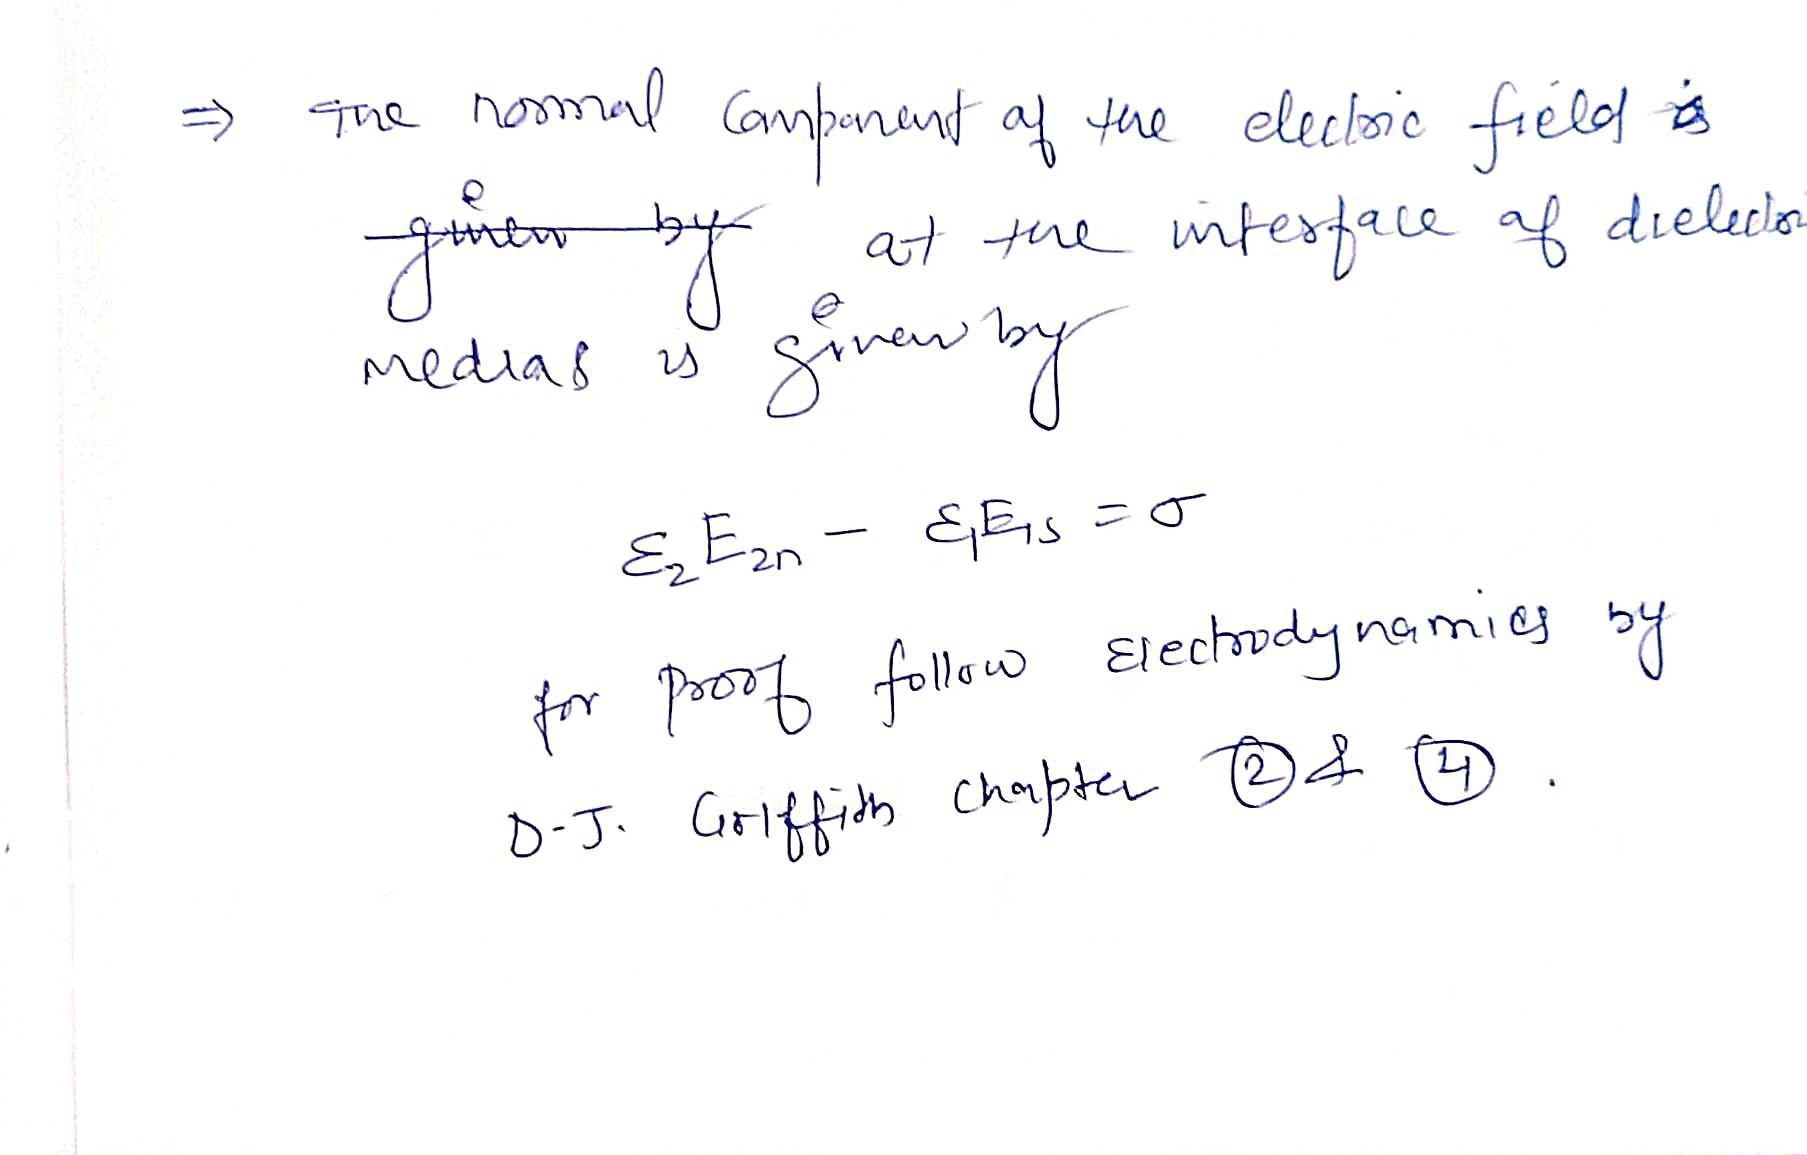 ⇒ The normal Component of the electric field is
given by at the interface of dielectri
medias is given by
ε₂E₂n − ε₁E₁s = σ
for Proof follow Electrodynamics by
D-J. Griffith Chapter ② & ④ .